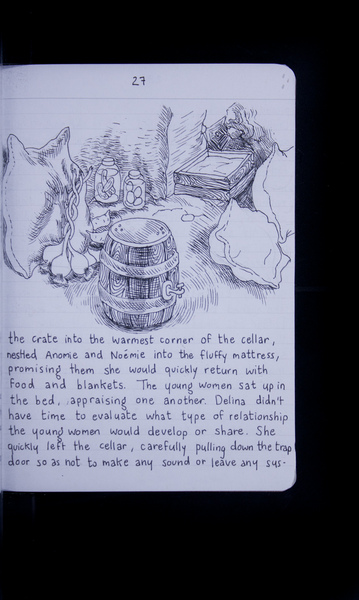 27
the crate into the warmest corner of the cellar,
nestled Anomie and Noémie into the fluffy mattress,
promising them she would quickly return with
food and blankets. The young women sat up in
the bed, appraising one another. Delina didn't
have time to evaluate what type of relationship
the young women would develop or share. She
quickly left the cellar, carefully pulling down the trap
door so as not to make any sound or leave any sus-